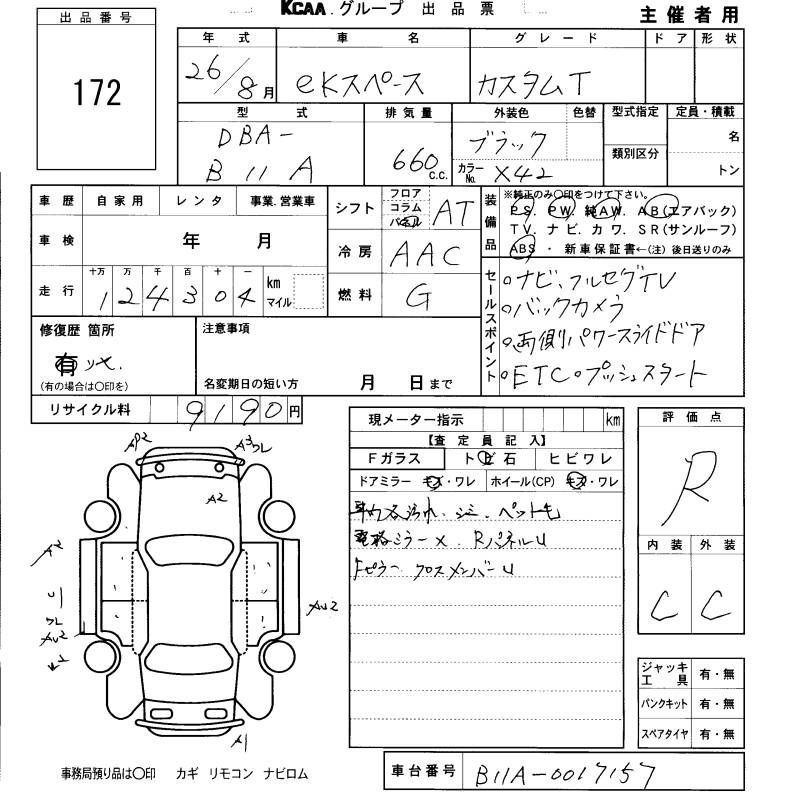 KCAA.グループ 出品票
主催者用
出品番号
172
年式 車名 グレード ドア 形状
26/8月 eKスペース カスタムT
型式 排気量 外装色 色替 型式指定 定員・積載
DBA- ブラック 名
B11A 660 c.c. カラーNo. X42 類別区分 トン
車歴 自家用 レンタ 事業.営業車
車検 年 月
走行 十万 万 千 百 十 一 km マイル
124304
シフト フロア コラム パネル AT
冷房 AAC
燃料 G
装備品
※純正のみ〇印をつけて下さい。
PS. PW. 純AW. AB(エアバック)
TV. ナビ. カワ. SR(サンルーフ)
ABS ・ 新車保証書←(注) 後日送りのみ
セールスポイント
○ナビ、フルセグTV
○バックカメラ
○両側パワースライドドア
○ETC○プッシュスタート
修復歴 箇所
有
(有の場合は〇印を)
注意事項
名変期日の短い方 月 日まで
リサイクル料 9190円
現メーター指示 km
【査定員記入】
Fガラス トビ石 ヒビワレ
ドアミラー キズ・ワレ ホイール(CP) キズ・ワレ
車内汚れ、シミ、ペット毛
電格ミラー× RパネルU
ピラー クロスメンバーU
評価点
R
内装 外装
C C
AP2
A3
ワレ
A2
A2
ワレ
AU2
AU2
A1
ジャッキ工具 有・無
パンクキット 有・無
スペアタイヤ 有・無
事務局預り品は〇印 カギ リモコン ナビロム
車台番号 B11A-0017157